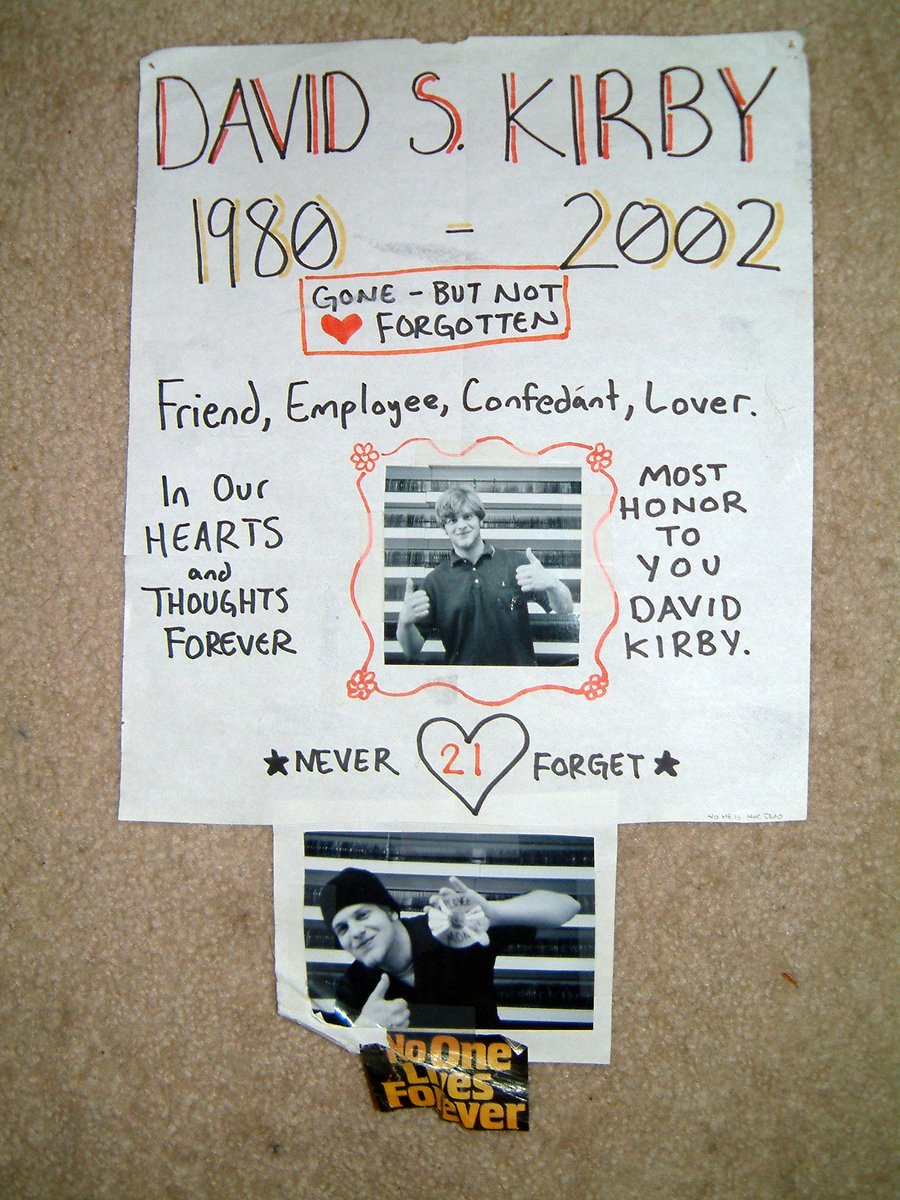 DAVID S. KIRBY
1980 - 2002
GONE - BUT NOT
FORGOTTEN
Friend, Employee, Confedánt, Lover.
In Our
HEARTS
and
THOUGHTS
FOREVER
MOST
HONOR
TO
YOU
DAVID
KIRBY.
NEVER 21 FORGET
NO HE IS NOT DEAD
No One
Lives
Forever